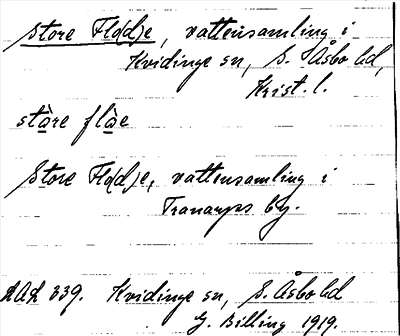 Store Flo(d)e, vattensamling i
Kvidinge sn, S. Åsbo hd,
Krist. l.
ståre flåe
Store Flo(d)e, vattensamling i
Tranarps by.
LAL 339. Kvidinge sn, S. Åsbo hd
G. Billing 1919.